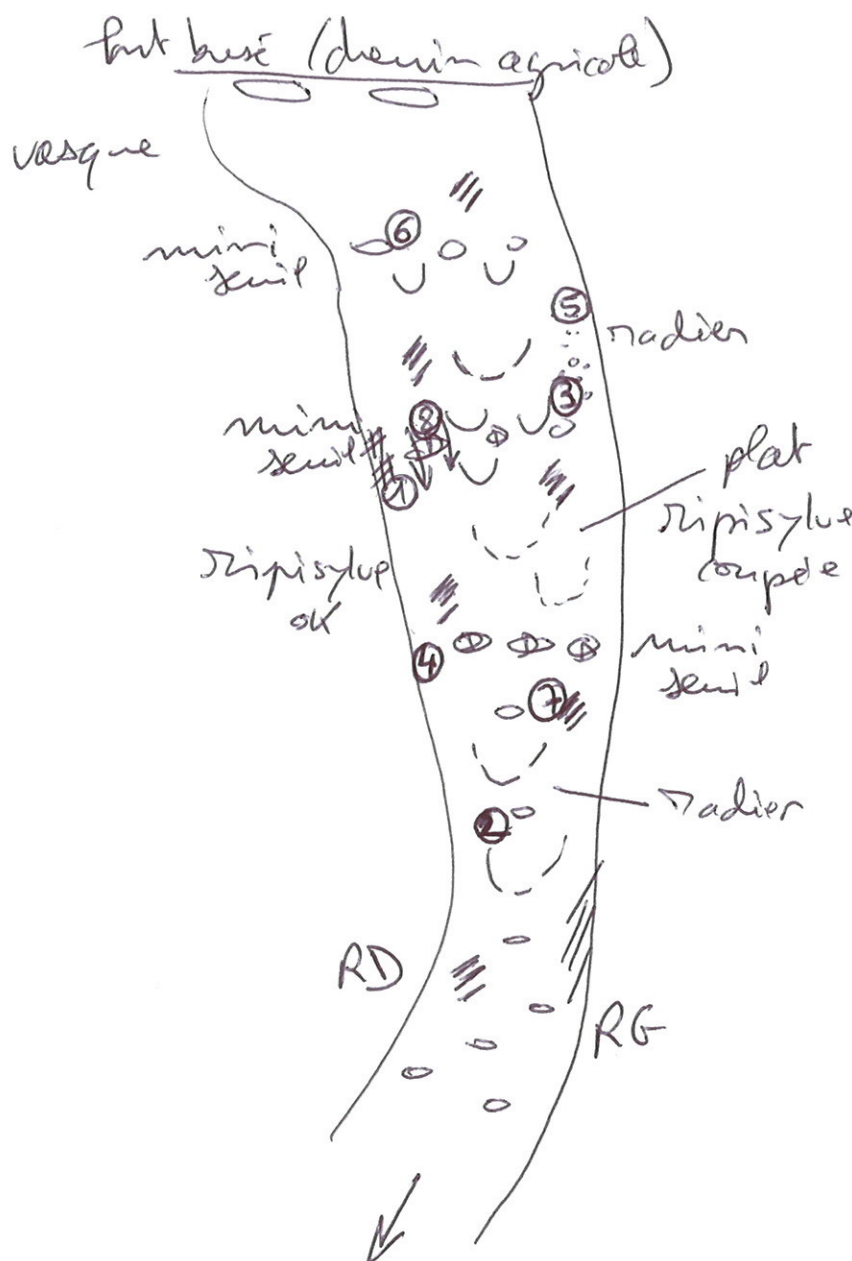 Pont busé (chemin agricole)
vasque
6
mini
seuil
5
radier
3
8
mini
seuil
1
plat
ripisylve
coupée
ripisylve
ok
4
mini
seuil
7
radier
2
RD
RG